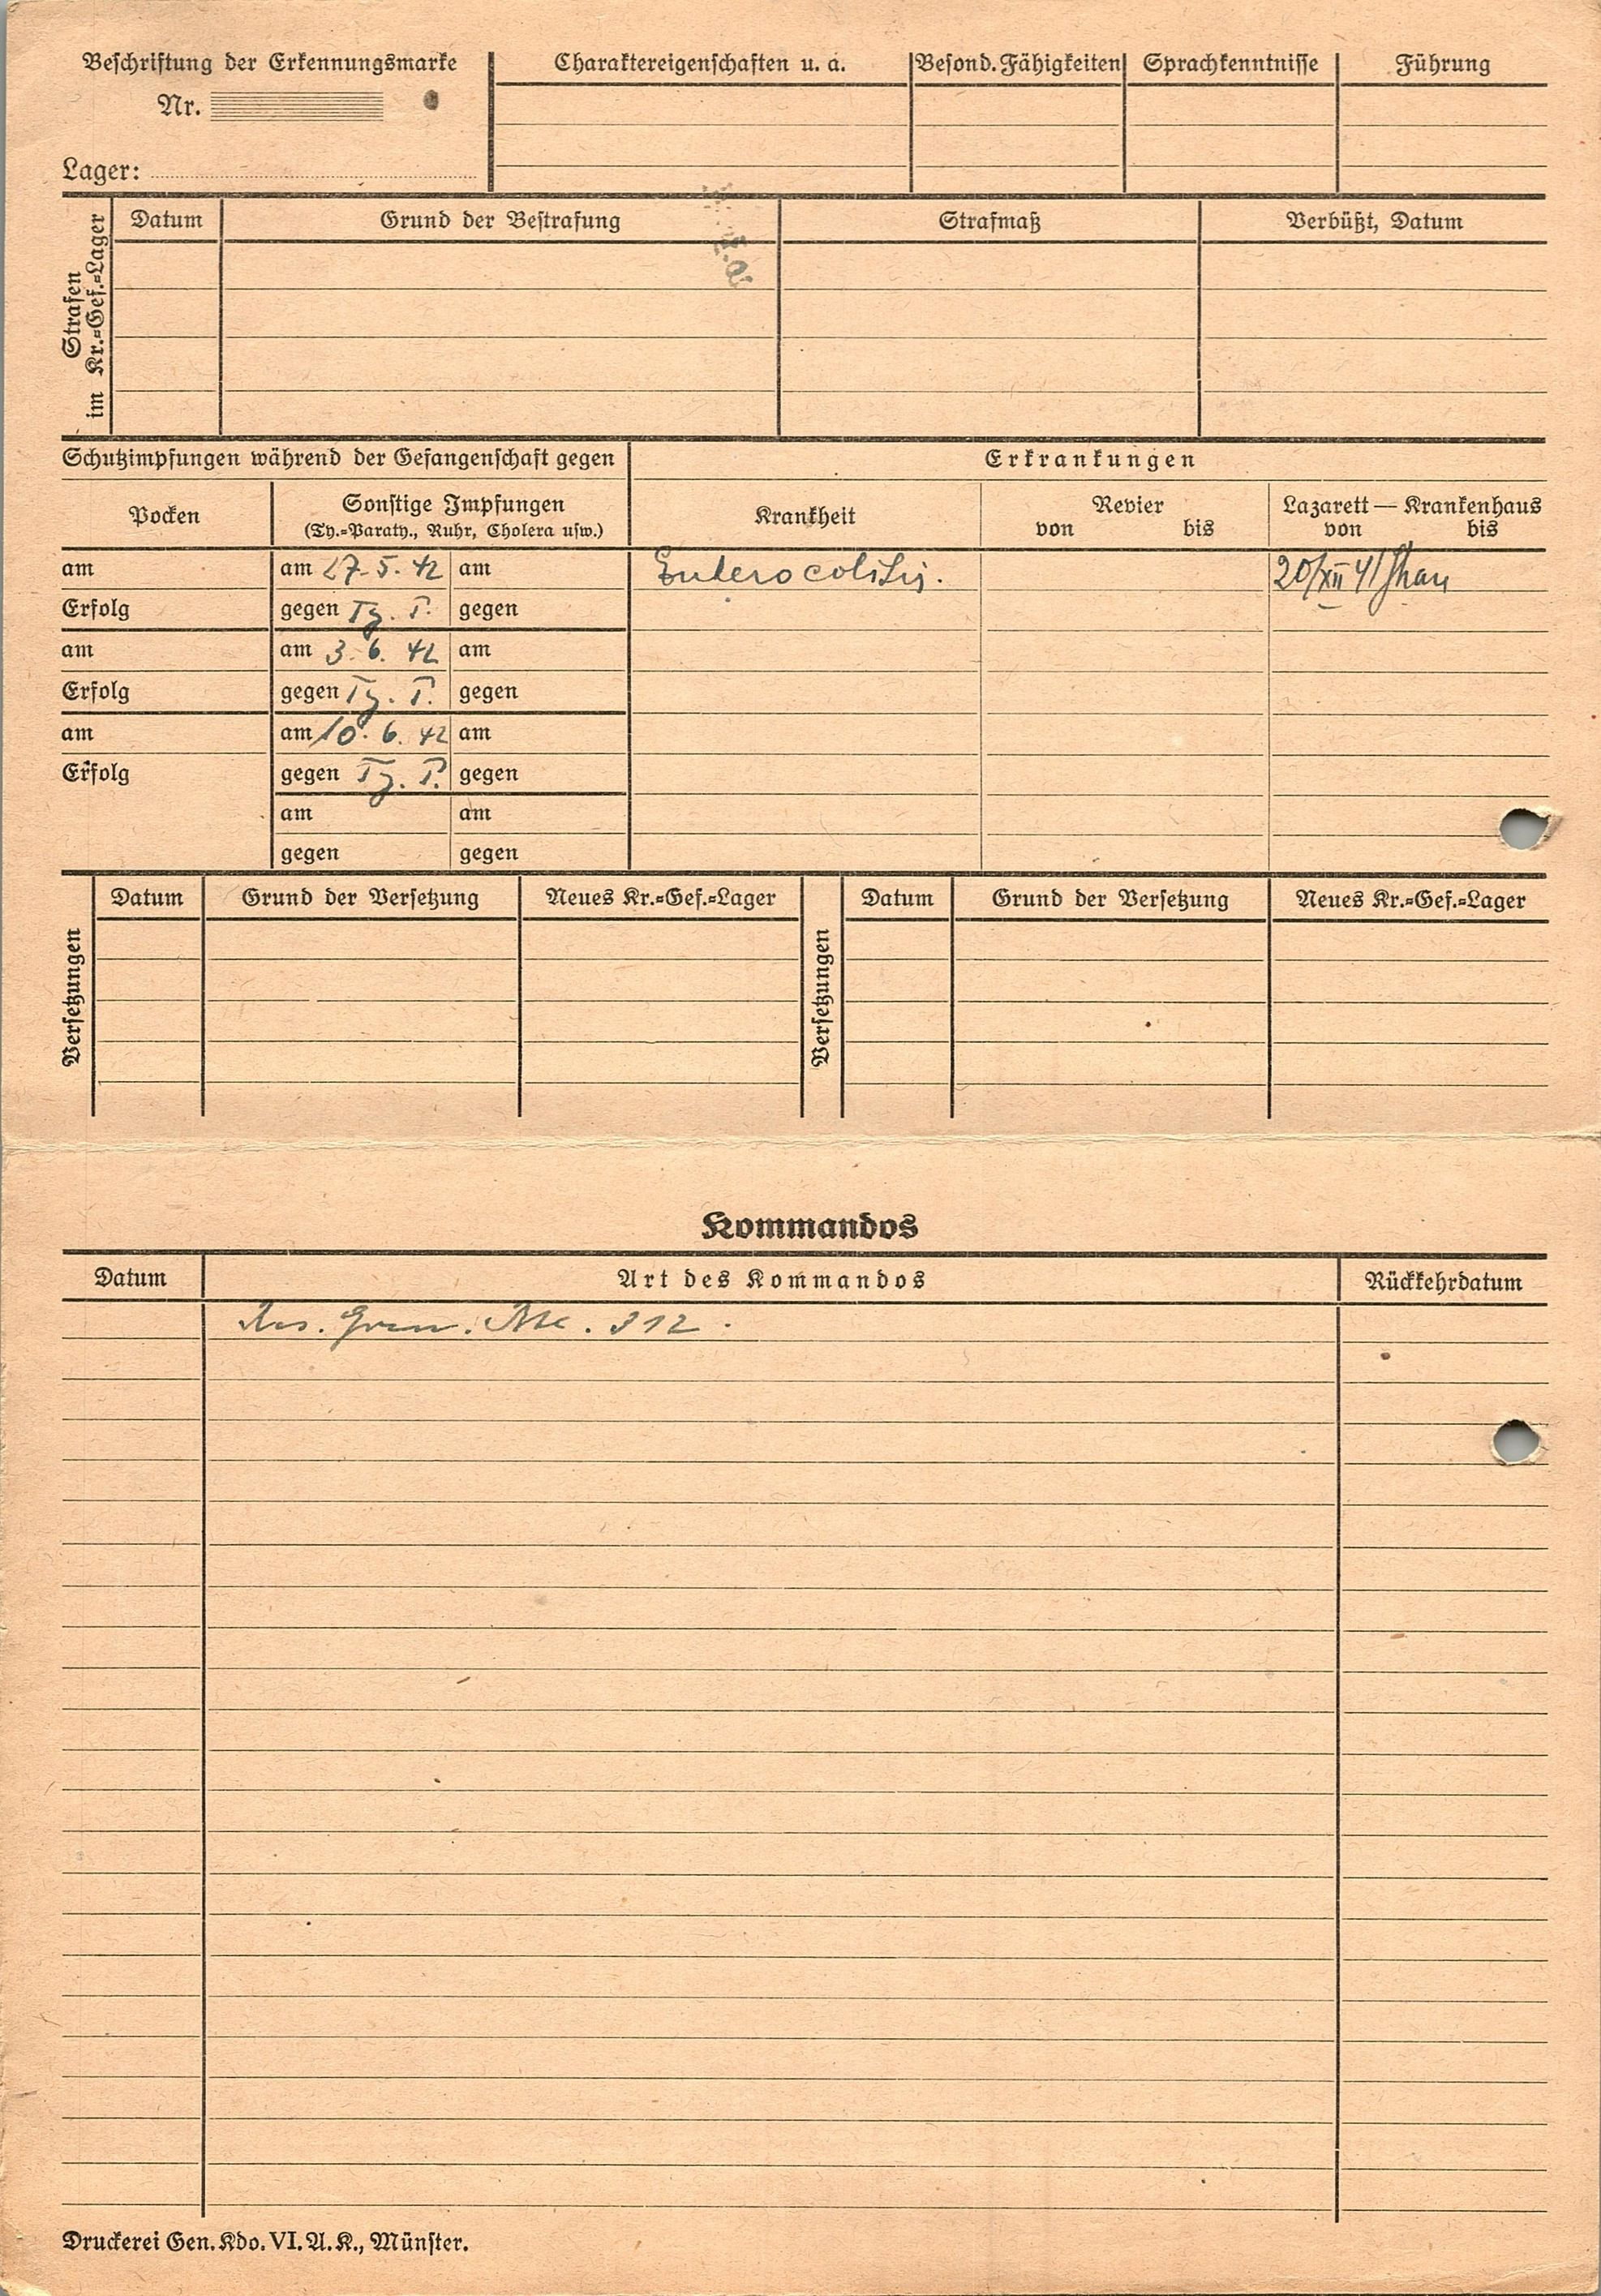 Beschriftung der Erkennungsmarke
Nr.
Lager:
Charaktereigenschaften u. a.
Besond. Fähigkeiten
Sprachkenntnisse
Führung
Strafen
im Kr.=Gef.=Lager
Datum
Grund der Bestrafung
Strafmaß
Verbüßt, Datum
Schutzimpfungen während der Gefangenschaft gegen
Erkrankungen
Pocken
Sonstige Impfungen
(Ty.=Paraty., Ruhr, Cholera usw.)
Krankheit
Revier
von bis
Lazarett — Krankenhaus
von bis
am
am 27. 5. 42
am
Enterocolitis.
20/XII 41
Erfolg
gegen Ty. P.
gegen
am
am 3. 6. 42
am
Erfolg
gegen Ty. P.
gegen
am
am 10. 6. 42
am
Erfolg
gegen Ty. P.
gegen
am
am
gegen
gegen
Versetzungen
Datum
Grund der Versetzung
Neues Kr.=Gef.=Lager
Versetzungen
Datum
Grund der Versetzung
Neues Kr.=Gef.=Lager
Kommandos
Datum
Art des Kommandos
Rückkehrdatum
312.
Druckerei Gen. Kdo. VI. A. K., Münster.